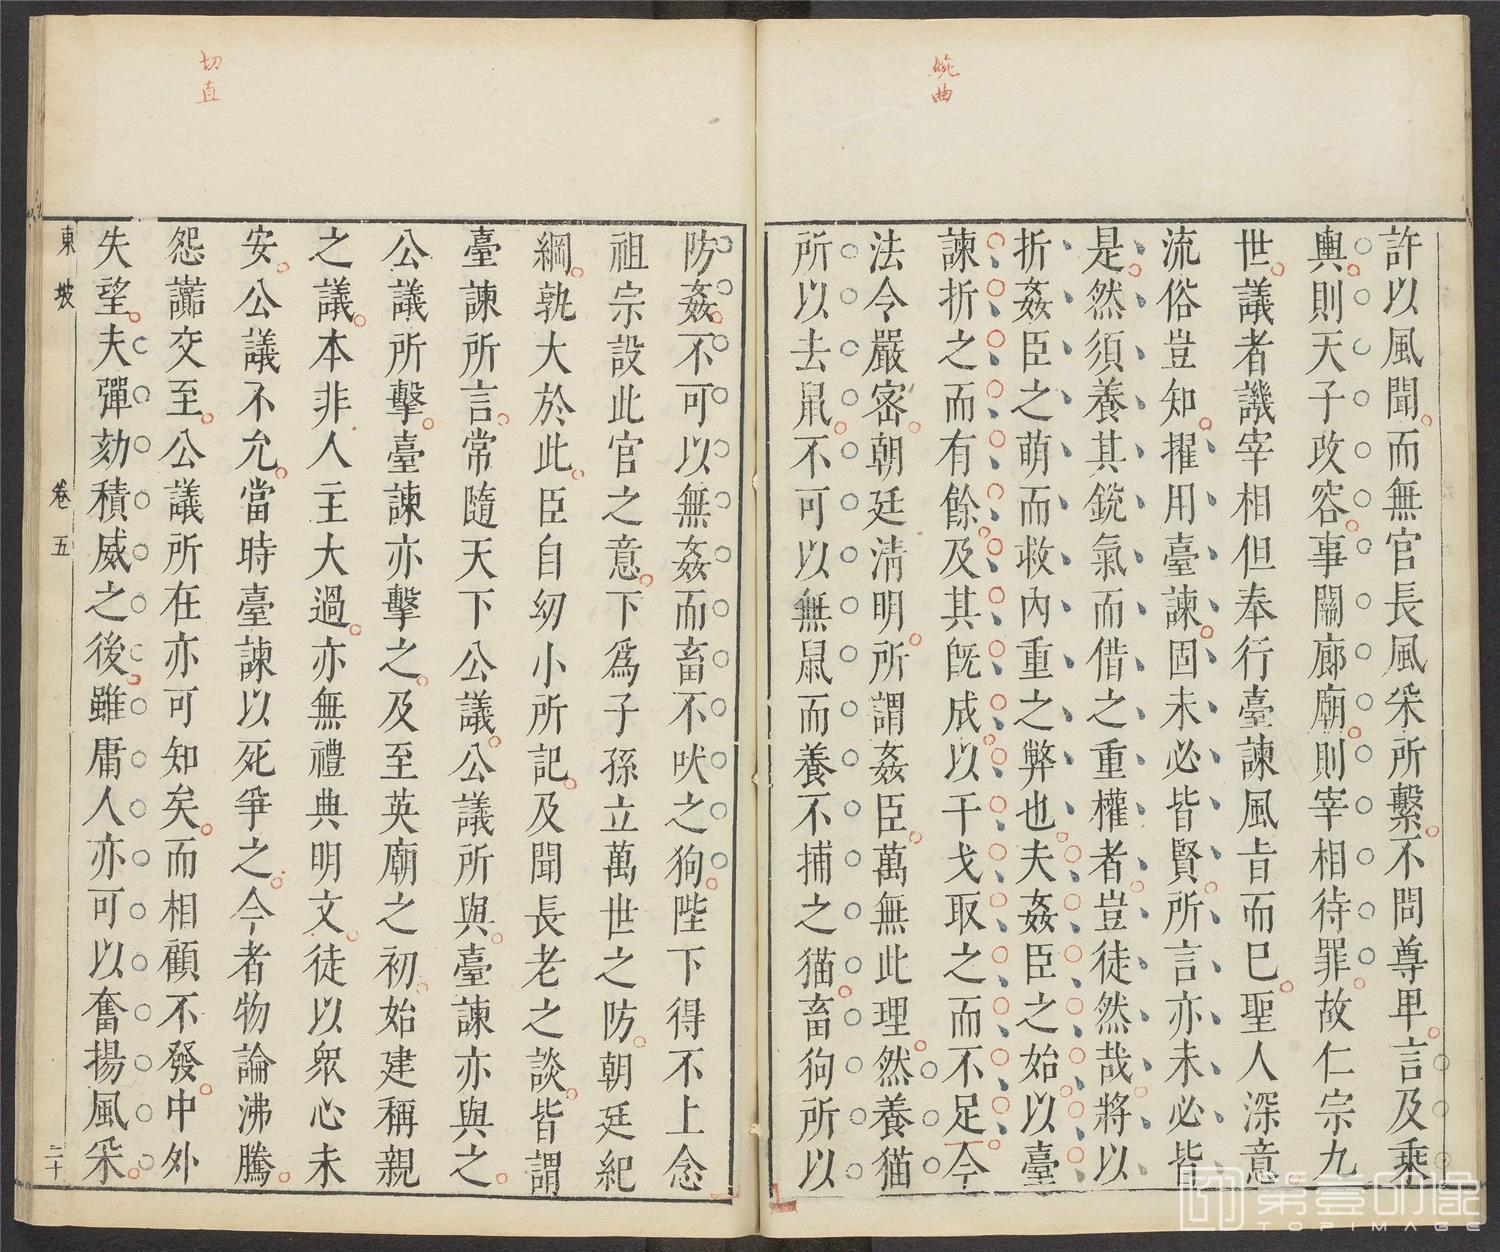 婉曲
許以風聞而無官長風采所繫不問尊卑言及乘
輿則天子改容事關廊廟則宰相待罪故仁宗九
世議者譏宰相但奉行臺諫風旨而已聖人深意
流俗豈知擢用臺諫固未必皆賢所言亦未必皆
是然須養其銳氣而借之重權者豈徒然哉將以
折姦臣之萌而救內重之弊也夫姦臣之始以臺
諫折之而有餘及其旣成以干戈取之而不足今
法令嚴密朝廷淸明所謂姦臣萬無此理然養猫
所以去鼠不可以無鼠而養不捕之猫畜狗所以
切直
防姦不可以無姦而畜不吠之狗陛下得不上念
祖宗設此官之意下爲子孫立萬世之防朝廷紀
綱孰大於此臣自幼小所記及聞長老之談皆謂
臺諫所言常隨天下公議公議所與臺諫亦與之
公議所擊臺諫亦擊之及至英廟之初始建稱親
之議本非人主大過亦無禮典明文徒以衆心未
安公議不允當時臺諫以死爭之今者物論沸騰
怨讟交至公議所在亦可知矣而相顧不發中外
失望夫彈劾積威之後雖庸人亦可以奮揚風采
東坡 卷五 二十
第壹印像
TOPIMAGE